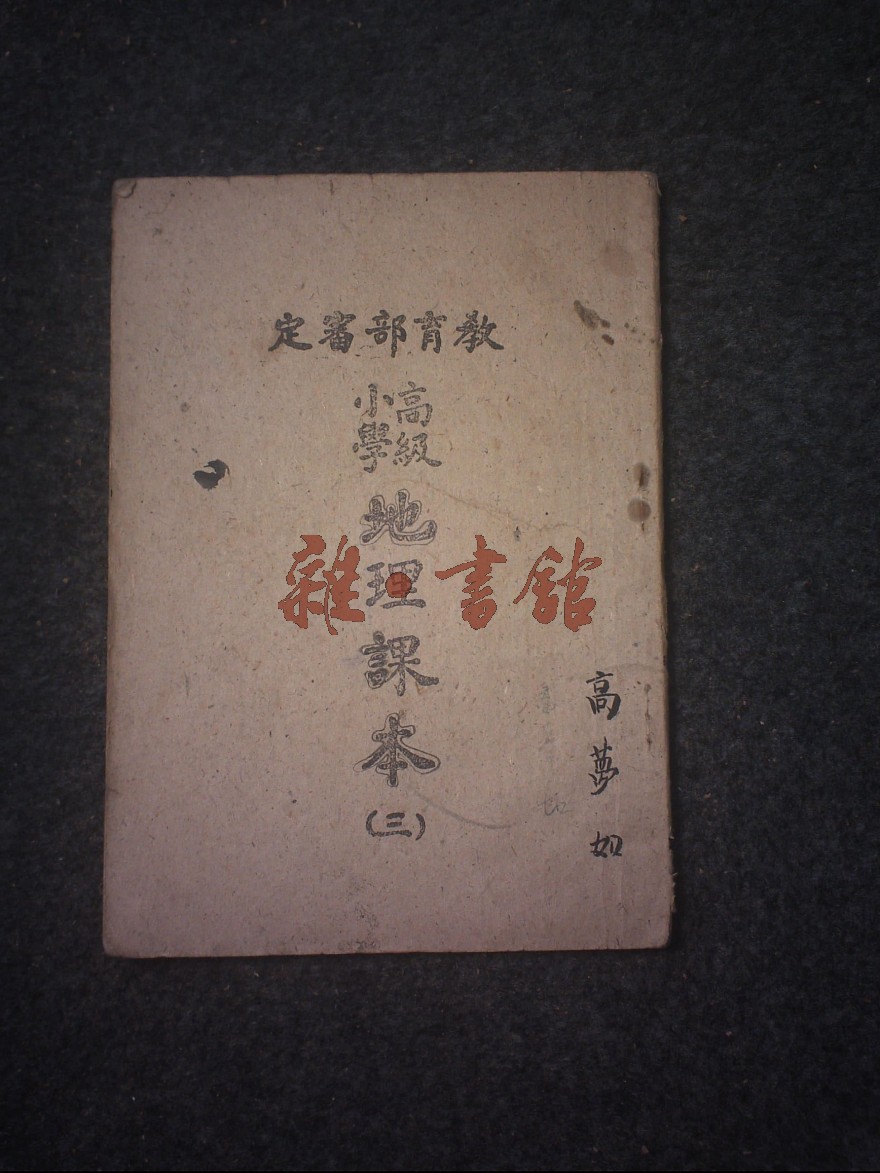 教育部審定
高級
小學
地理課本
(三)
高夢如
雜·書館